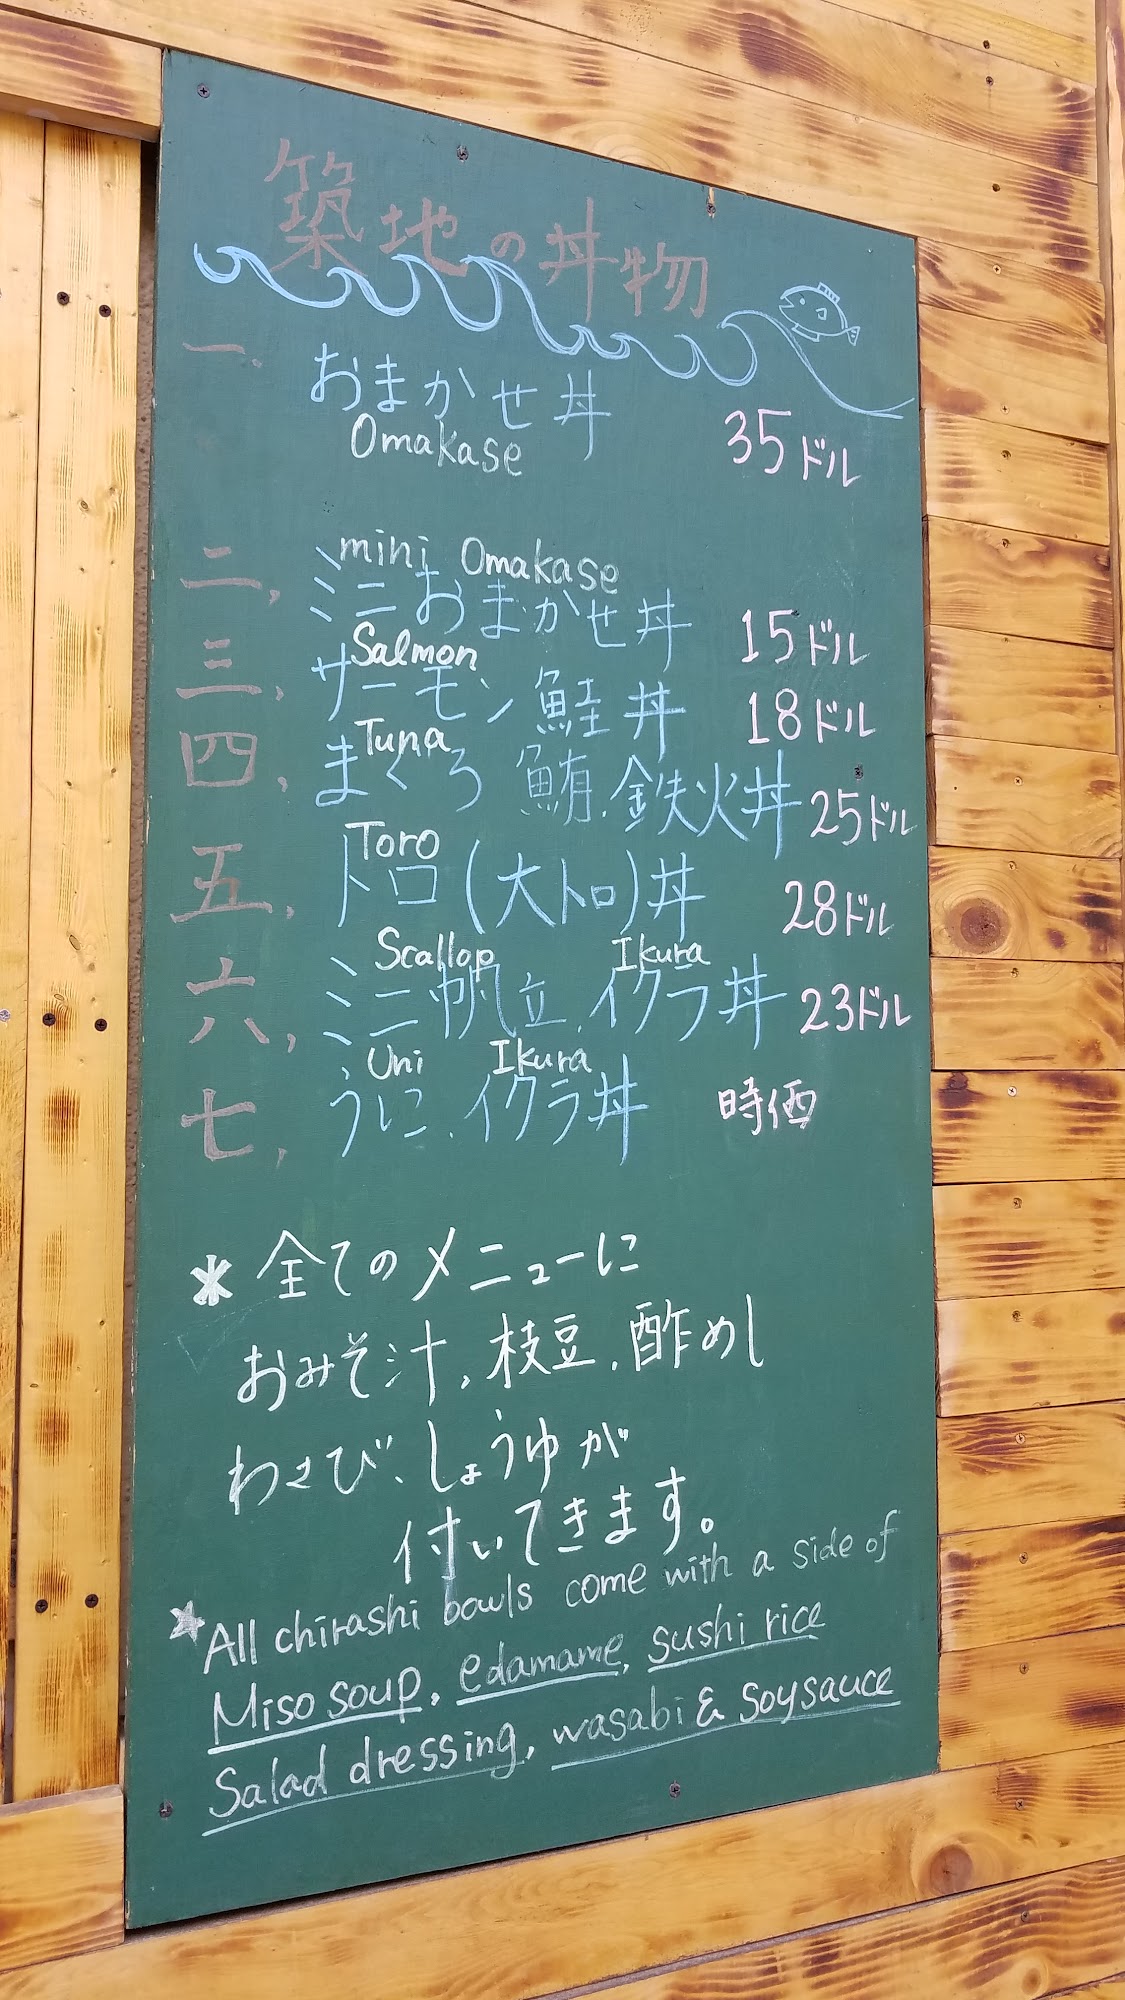 築地の丼物
一、 おまかせ丼
Omakase 35ドル
mini Omakase
二、 ミニおまかせ丼 15ドル
Salmon
三、 サーモン 鮭丼 18ドル
Tuna
四、 まぐろ 鮪、鉄火丼 25ドル
Toro
五、 トロ(大トロ)丼 28ドル
Scallop Ikura
六、 ミニ帆立、イクラ丼 23ドル
Uni Ikura
七、 うに、イクラ丼 時価
* 全てのメニューに
おみそ汁、枝豆、酢めし
わさび、しょうゆが
付いてきます。
* All chirashi bowls come with a side of
Miso soup, edamame, sushi rice
Salad dressing, wasabi & soysauce